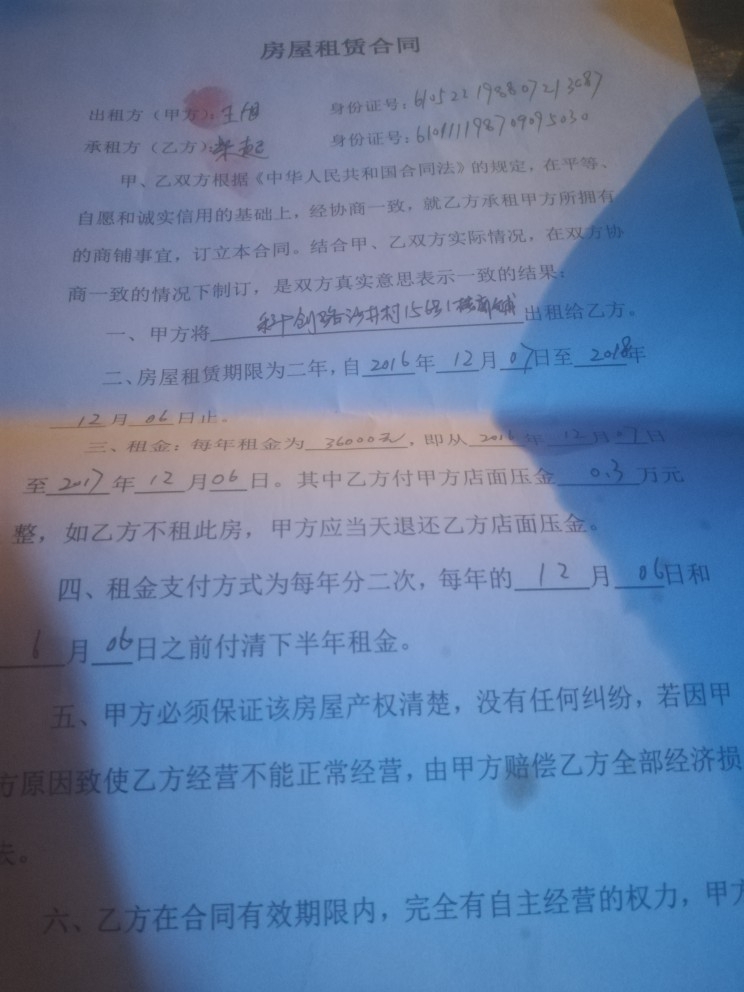 房屋租赁合同
出租方（甲方）： 身份证号：610522198807213087
承租方（乙方）： 身份证号：610111198709095030
甲、乙双方根据《中华人民共和国合同法》的规定，在平等、
自愿和诚实信用的基础上，经协商一致，就乙方承租甲方所拥有
的商铺事宜，订立本合同。结合甲、乙双方实际情况，在双方协
商一致的情况下制订，是双方真实意思表示一致的结果：
一、甲方将科创路沙井村156号1楼商铺出租给乙方。
二、房屋租赁期限为二年，自2016年12月07日至2018年
12月06日止。
三、租金：每年租金为36000元，即从2016年12月07日
至2017年12月06日。其中乙方付甲方店面压金0.3万元
整，如乙方不租此房，甲方应当天退还乙方店面压金。
四、租金支付方式为每年分二次，每年的12月06日和
6月06日之前付清下半年租金。
五、甲方必须保证该房屋产权清楚，没有任何纠纷，若因甲
方原因致使乙方经营不能正常经营，由甲方赔偿乙方全部经济损
失。
六、乙方在合同有效期限内，完全有自主经营的权力，甲方